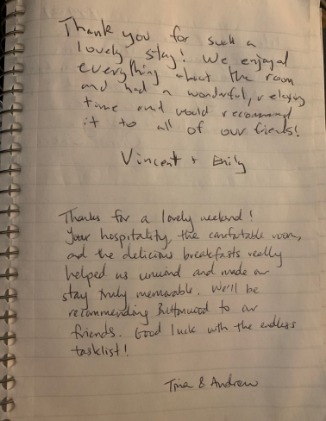 Thank you for such a
lovely stay! We enjoyed
everything about the room
and had a wonderful, relaxing
time and would recommend
it to all of our friends!
Vincent + Emily
Thanks for a lovely weekend!
Your hospitality, the comfortable room,
and the delicious breakfasts really
helped us unwind and made our
stay truly memorable. We'll be
recommending Buttonwood to our
friends. Good luck with the endless
tasklist!
Tina & Andrew